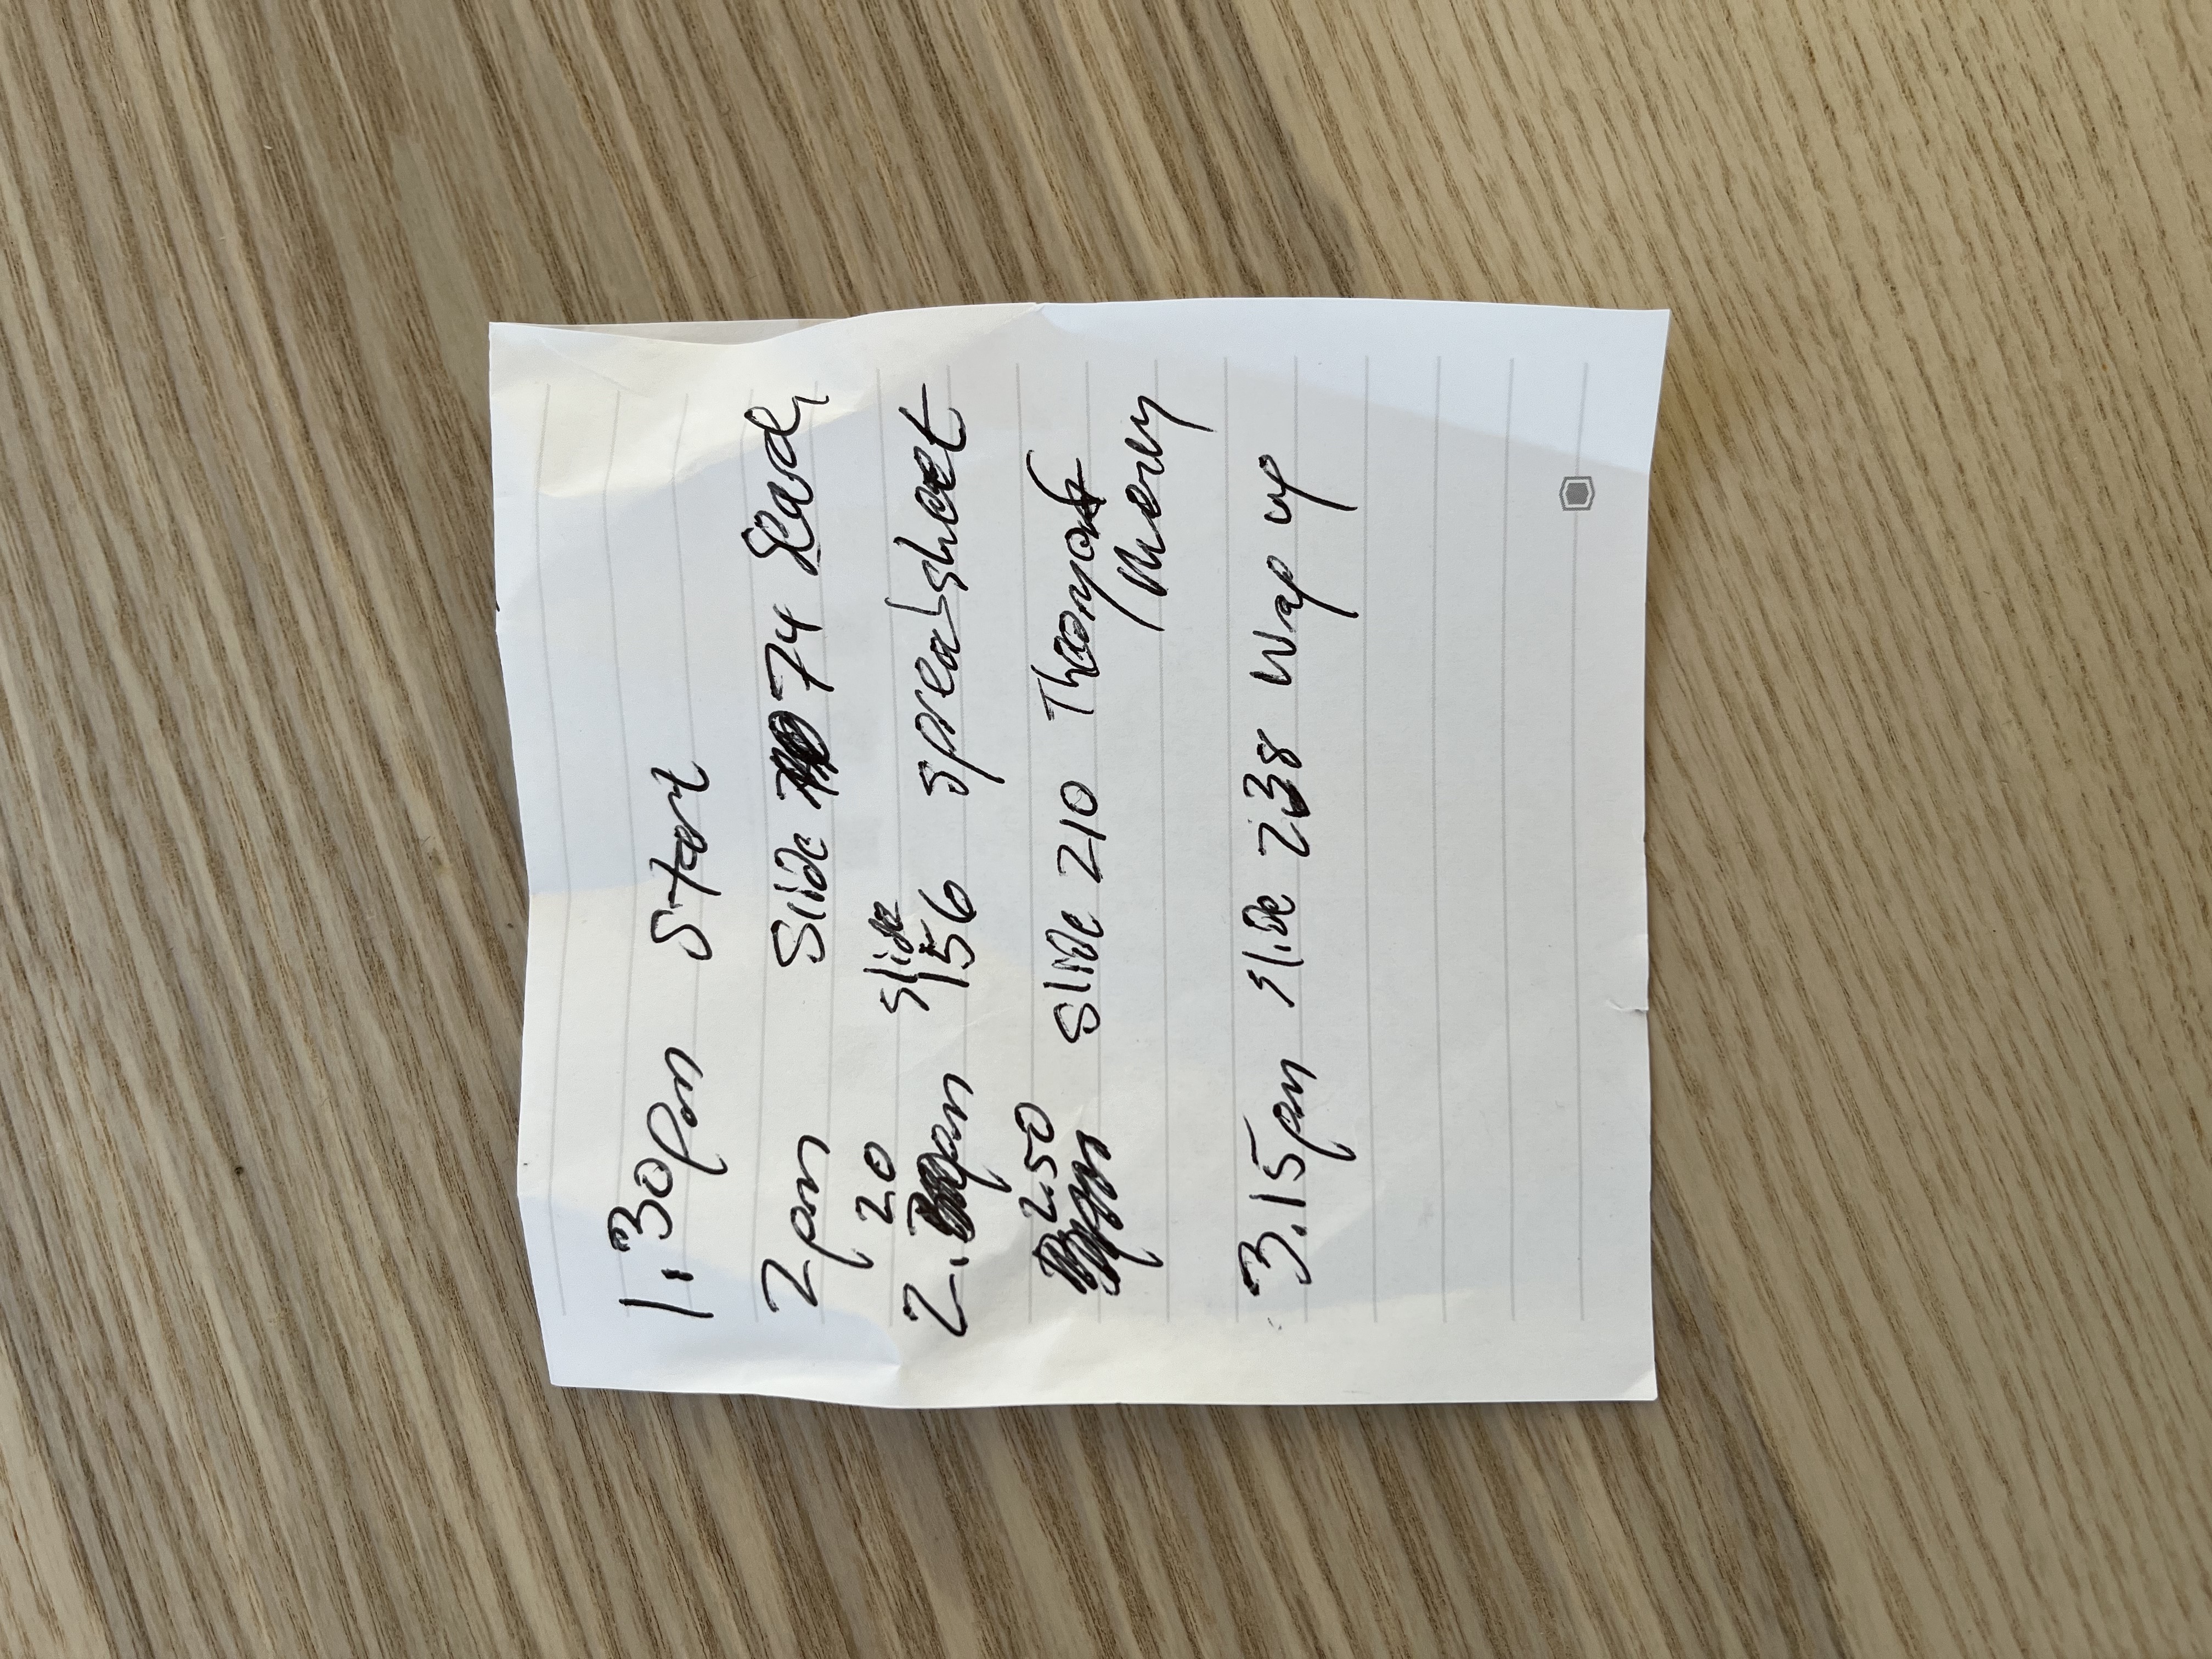 1.30pm Start
2pm Slide 74 Search
20 slide
2. pm 156 spreadsheet
2.50
slide 210 Theory of
Money
3.15pm slide 238 Wrap up